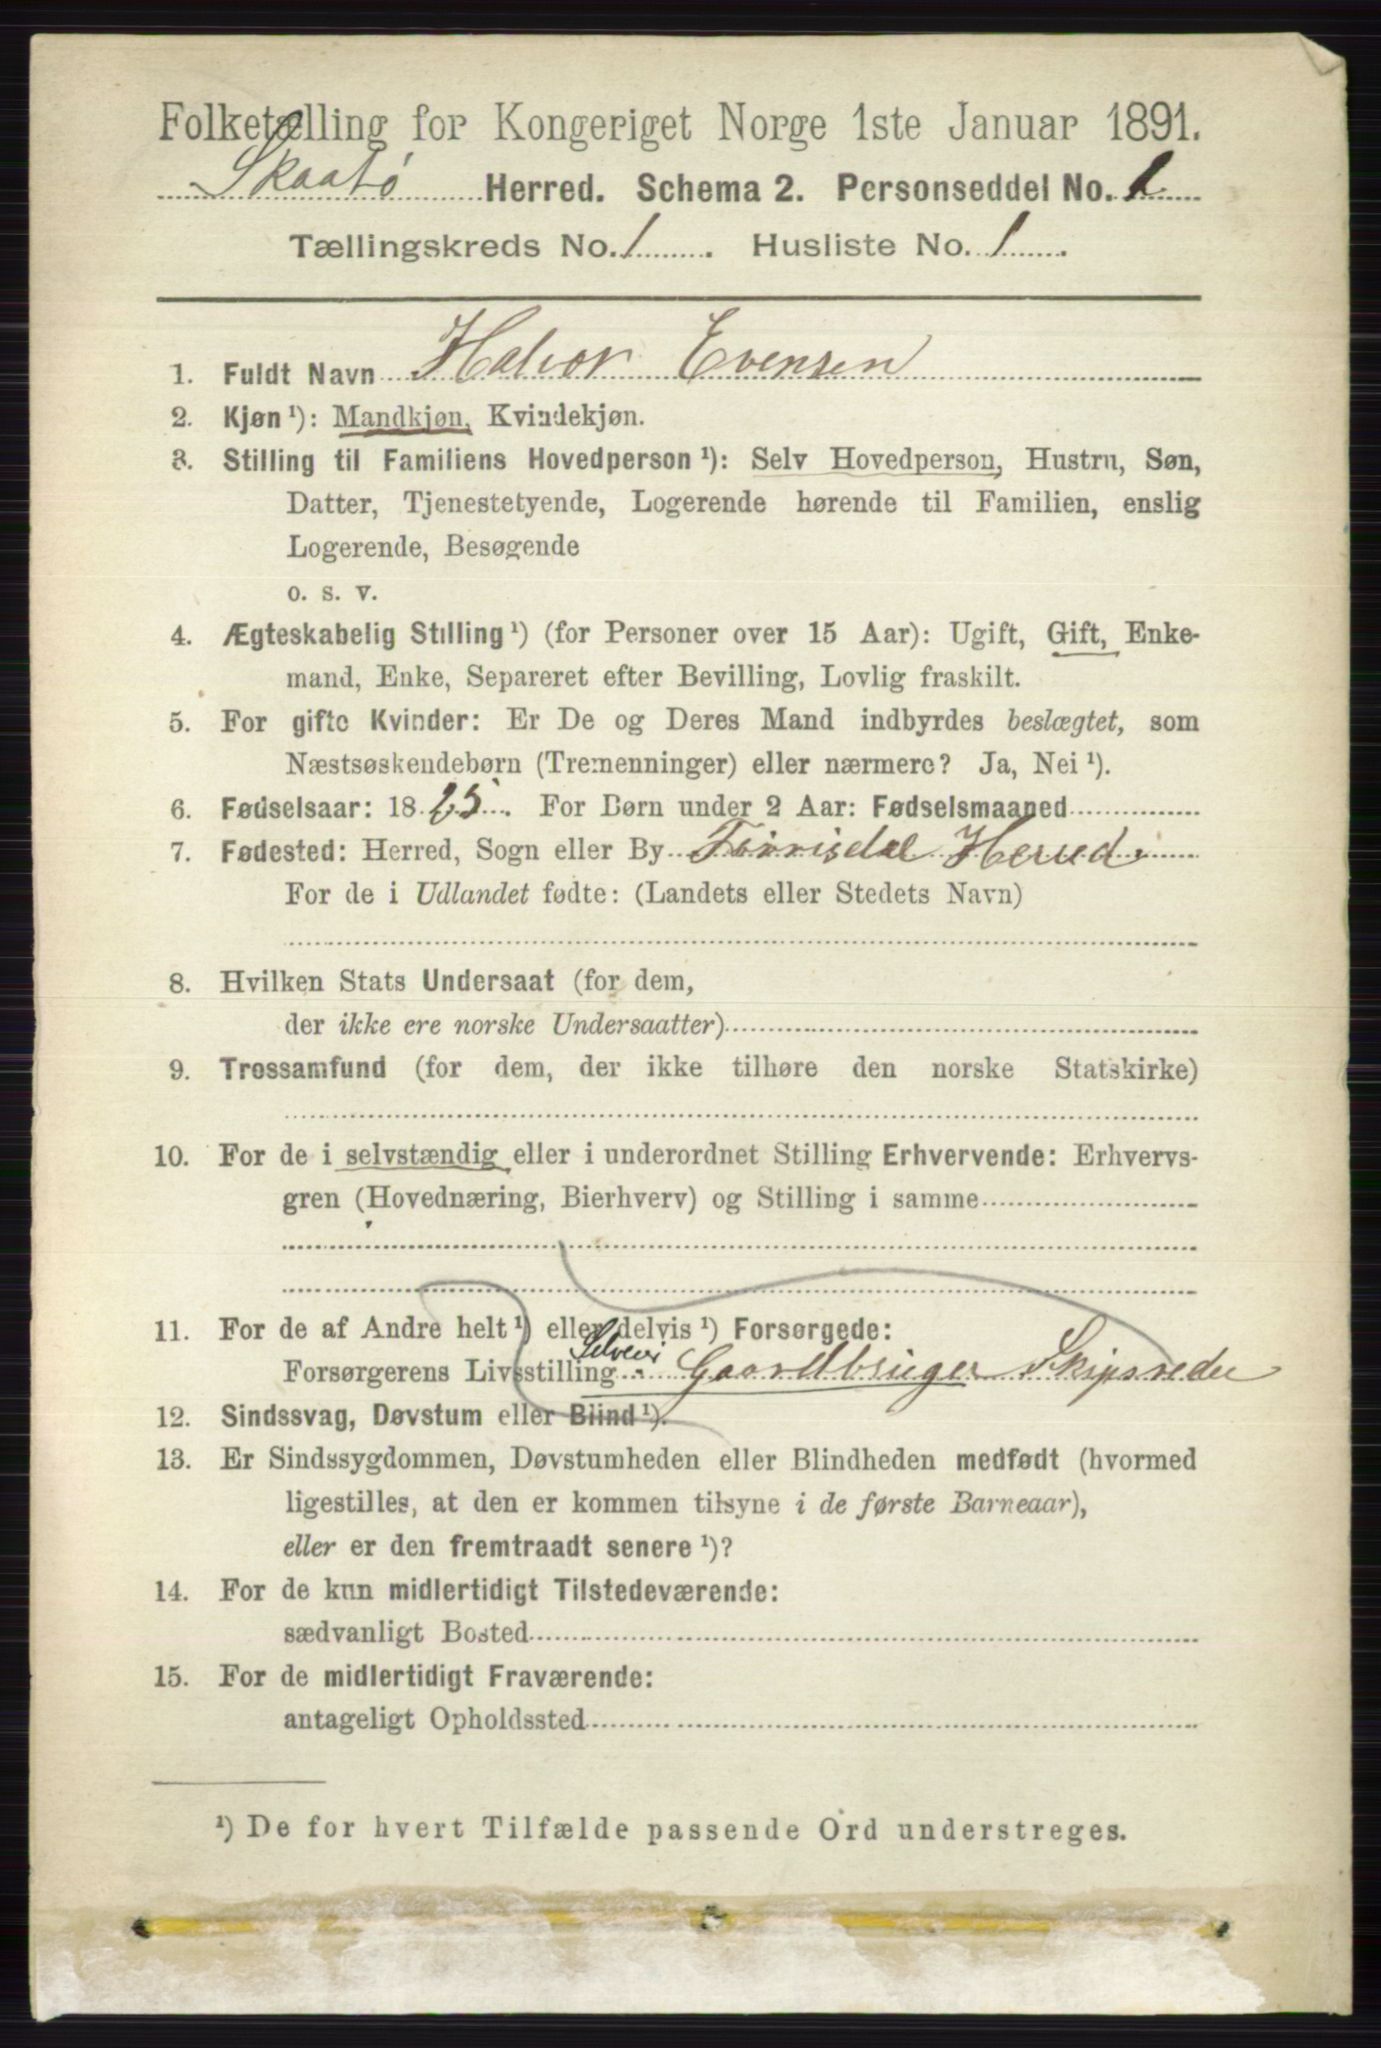 Folketælling for Kongeriget Norge 1ste Januar 1891.
Skaatø Herred. Schema 2. Personseddel No. 1
Tællingskreds No. 1. Husliste No. 1.
1. Fuldt Navn Halvor Evensen
2. Kjøn ¹): Mandkjøn, Kvindekjøn.
3. Stilling til Familiens Hovedperson ¹): Selv Hovedperson, Hustru, Søn,
Datter, Tjenestetyende, Logerende hørende til Familien, enslig
Logerende, Besøgende
o. s. v.
4. Ægteskabelig Stilling ¹) (for Personer over 15 Aar): Ugift, Gift, Enke-
mand, Enke, Separeret efter Bevilling, Lovlig fraskilt.
5. For gifte Kvinder: Er De og Deres Mand indbyrdes beslægtet, som
Næstsøskendebørn (Tremenninger) eller nærmere? Ja, Nei ¹).
6. Fødselsaar: 1825. For Børn under 2 Aar: Fødselsmaaned
7. Fødested: Herred, Sogn eller By Herred.
For de i Udlandet fødte: (Landets eller Stedets Navn)
8. Hvilken Stats Undersaat (for dem,
der ikke ere norske Undersaatter)
9. Trossamfund (for dem, der ikke tilhøre den norske Statskirke)
10. For de i selvstændig eller i underordnet Stilling Erhvervende: Erhvervs-
gren (Hovednæring, Bierhverv) og Stilling i samme
11. For de af Andre helt ¹) eller delvis ¹) Forsørgede:
Forsørgerens Livsstilling Selveier Gaardbruger Skipsreder
12. Sindssvag, Døvstum eller Blind ¹).
13. Er Sindssygdommen, Døvstumheden eller Blindheden medfødt (hvormed
ligestilles, at den er kommen tilsyne i de første Barneaar),
eller er den fremtraadt senere ¹)?
14. For de kun midlertidigt Tilstedeværende:
sædvanligt Bosted
15. For de midlertidigt Fraværende:
antageligt Opholdssted
¹) De for hvert Tilfælde passende Ord understreges.